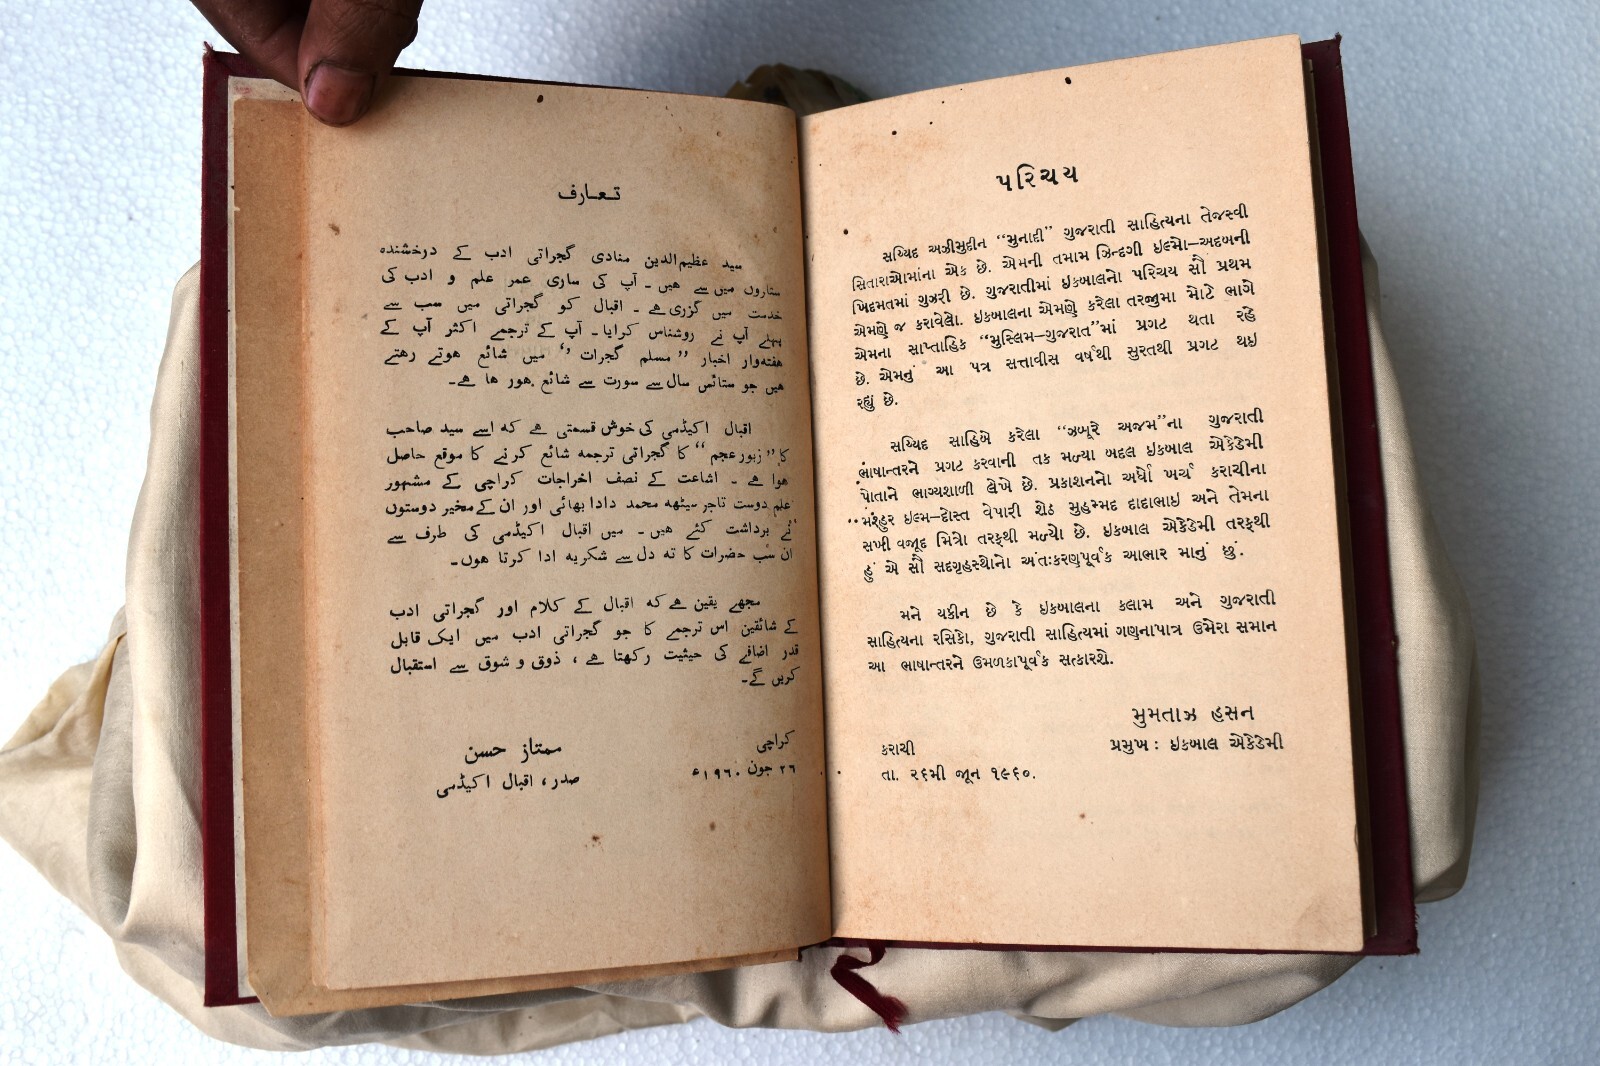 تعارف
سید عظیم‌الدین منادی گجراتی ادب کے درخشندہ
ستاروں میں سے ہیں ۔ آپ کی ساری عمر علم و ادب کی
خدمت میں گزری ہے ۔ اقبال کو گجراتی میں سب سے
پہلے آپ نے روشناس کرایا ۔ آپ کے ترجمے اکثر آپ کے
ہفتہ‌وار اخبار ”مسلم گجرات“ میں شائع ہوتے رہتے
ہیں جو ستائس سال سے سورت سے شائع ہور ہا ہے ۔
اقبال اکیڈمی کی خوش قسمتی ہے کہ اسے سید صاحب
کا ”زبور عجم“ کا گجراتی ترجمہ شائع کرنے کا موقع حاصل
ہوا ہے ۔ اشاعت کے نصف اخراجات کراچی کے مشہور
علم دوست تاجر سیٹھ محمد دادا بھائی اور ان کے مخیر دوستوں
نے برداشت کئے ہیں ۔ میں اقبال اکیڈمی کی طرف سے
ان سب حضرات کا تہ دل سے شکریہ ادا کرتا ہوں ۔
مجھے یقین ہے کہ اقبال کے کلام اور گجراتی ادب
کے شائقین اس ترجمے کا جو گجراتی ادب میں ایک قابل
قدر اضافے کی حیثیت رکھتا ہے ، ذوق و شوق سے استقبال
کریں گے ۔
ممتاز حسن
صدر ، اقبال اکیڈمی
کراچی
۲۶ جون ۱۹۶۰ء
પરિચય
સય્યિદ અઝીમુદ્દીન “મુનાદી” ગુજરાતી સાહિત્યના તેજસ્વી
સિતારાઓમાંના એક છે. એમની તમામ ઝિન્દગી ઇલ્મો-અદબની
ખિદમતમાં ગુઝરી છે. ગુજરાતીમાં ઇકબાલનો પરિચય સૌ પ્રથમ
એમણે જ કરાવેલો. ઇકબાલના એમણે કરેલા તરજુમા મોટે ભાગે
એમના સાપ્તાહિક “મુસ્લિમ-ગુજરાત”માં પ્રગટ થતા રહે
છે. એમનું આ પત્ર સત્તાવીસ વર્ષથી સુરતથી પ્રગટ થઇ
રહ્યું છે.
સય્યિદ સાહિબે કરેલા “ઝબૂરે અજમ”ના ગુજરાતી
ભાષાન્તરને પ્રગટ કરવાની તક મળ્યા બદલ ઇકબાલ એકેડેમી
પોતાને ભાગ્યશાળી લેખે છે. પ્રકાશનનો અર્ધો ખર્ચ કરાચીના
મશ્હુર ઇલ્મ-દોસ્ત વેપારી શેઠ મુહમ્મદ દાદાભાઇ અને તેમના
સખી વજૂદ મિત્રો તરફથી મળ્યો છે. ઇકબાલ એકેડેમી તરફથી
હું એ સૌ સદગૃહસ્થોનો અંતઃકરણપૂર્વક આભાર માનું છું.
મને યકીન છે કે ઇકબાલના કલામ અને ગુજરાતી
સાહિત્યના રસિકો, ગુજરાતી સાહિત્યમાં ગણનાપાત્ર ઉમેરા સમાન
આ ભાષાન્તરને ઉમળકાપૂર્વક સત્કારશે.
મુમતાઝ હસન
પ્રમુખ : ઇકબાલ એકેડેમી
કરાચી
તા. ૨૬મી જૂન ૧૯૬૦.